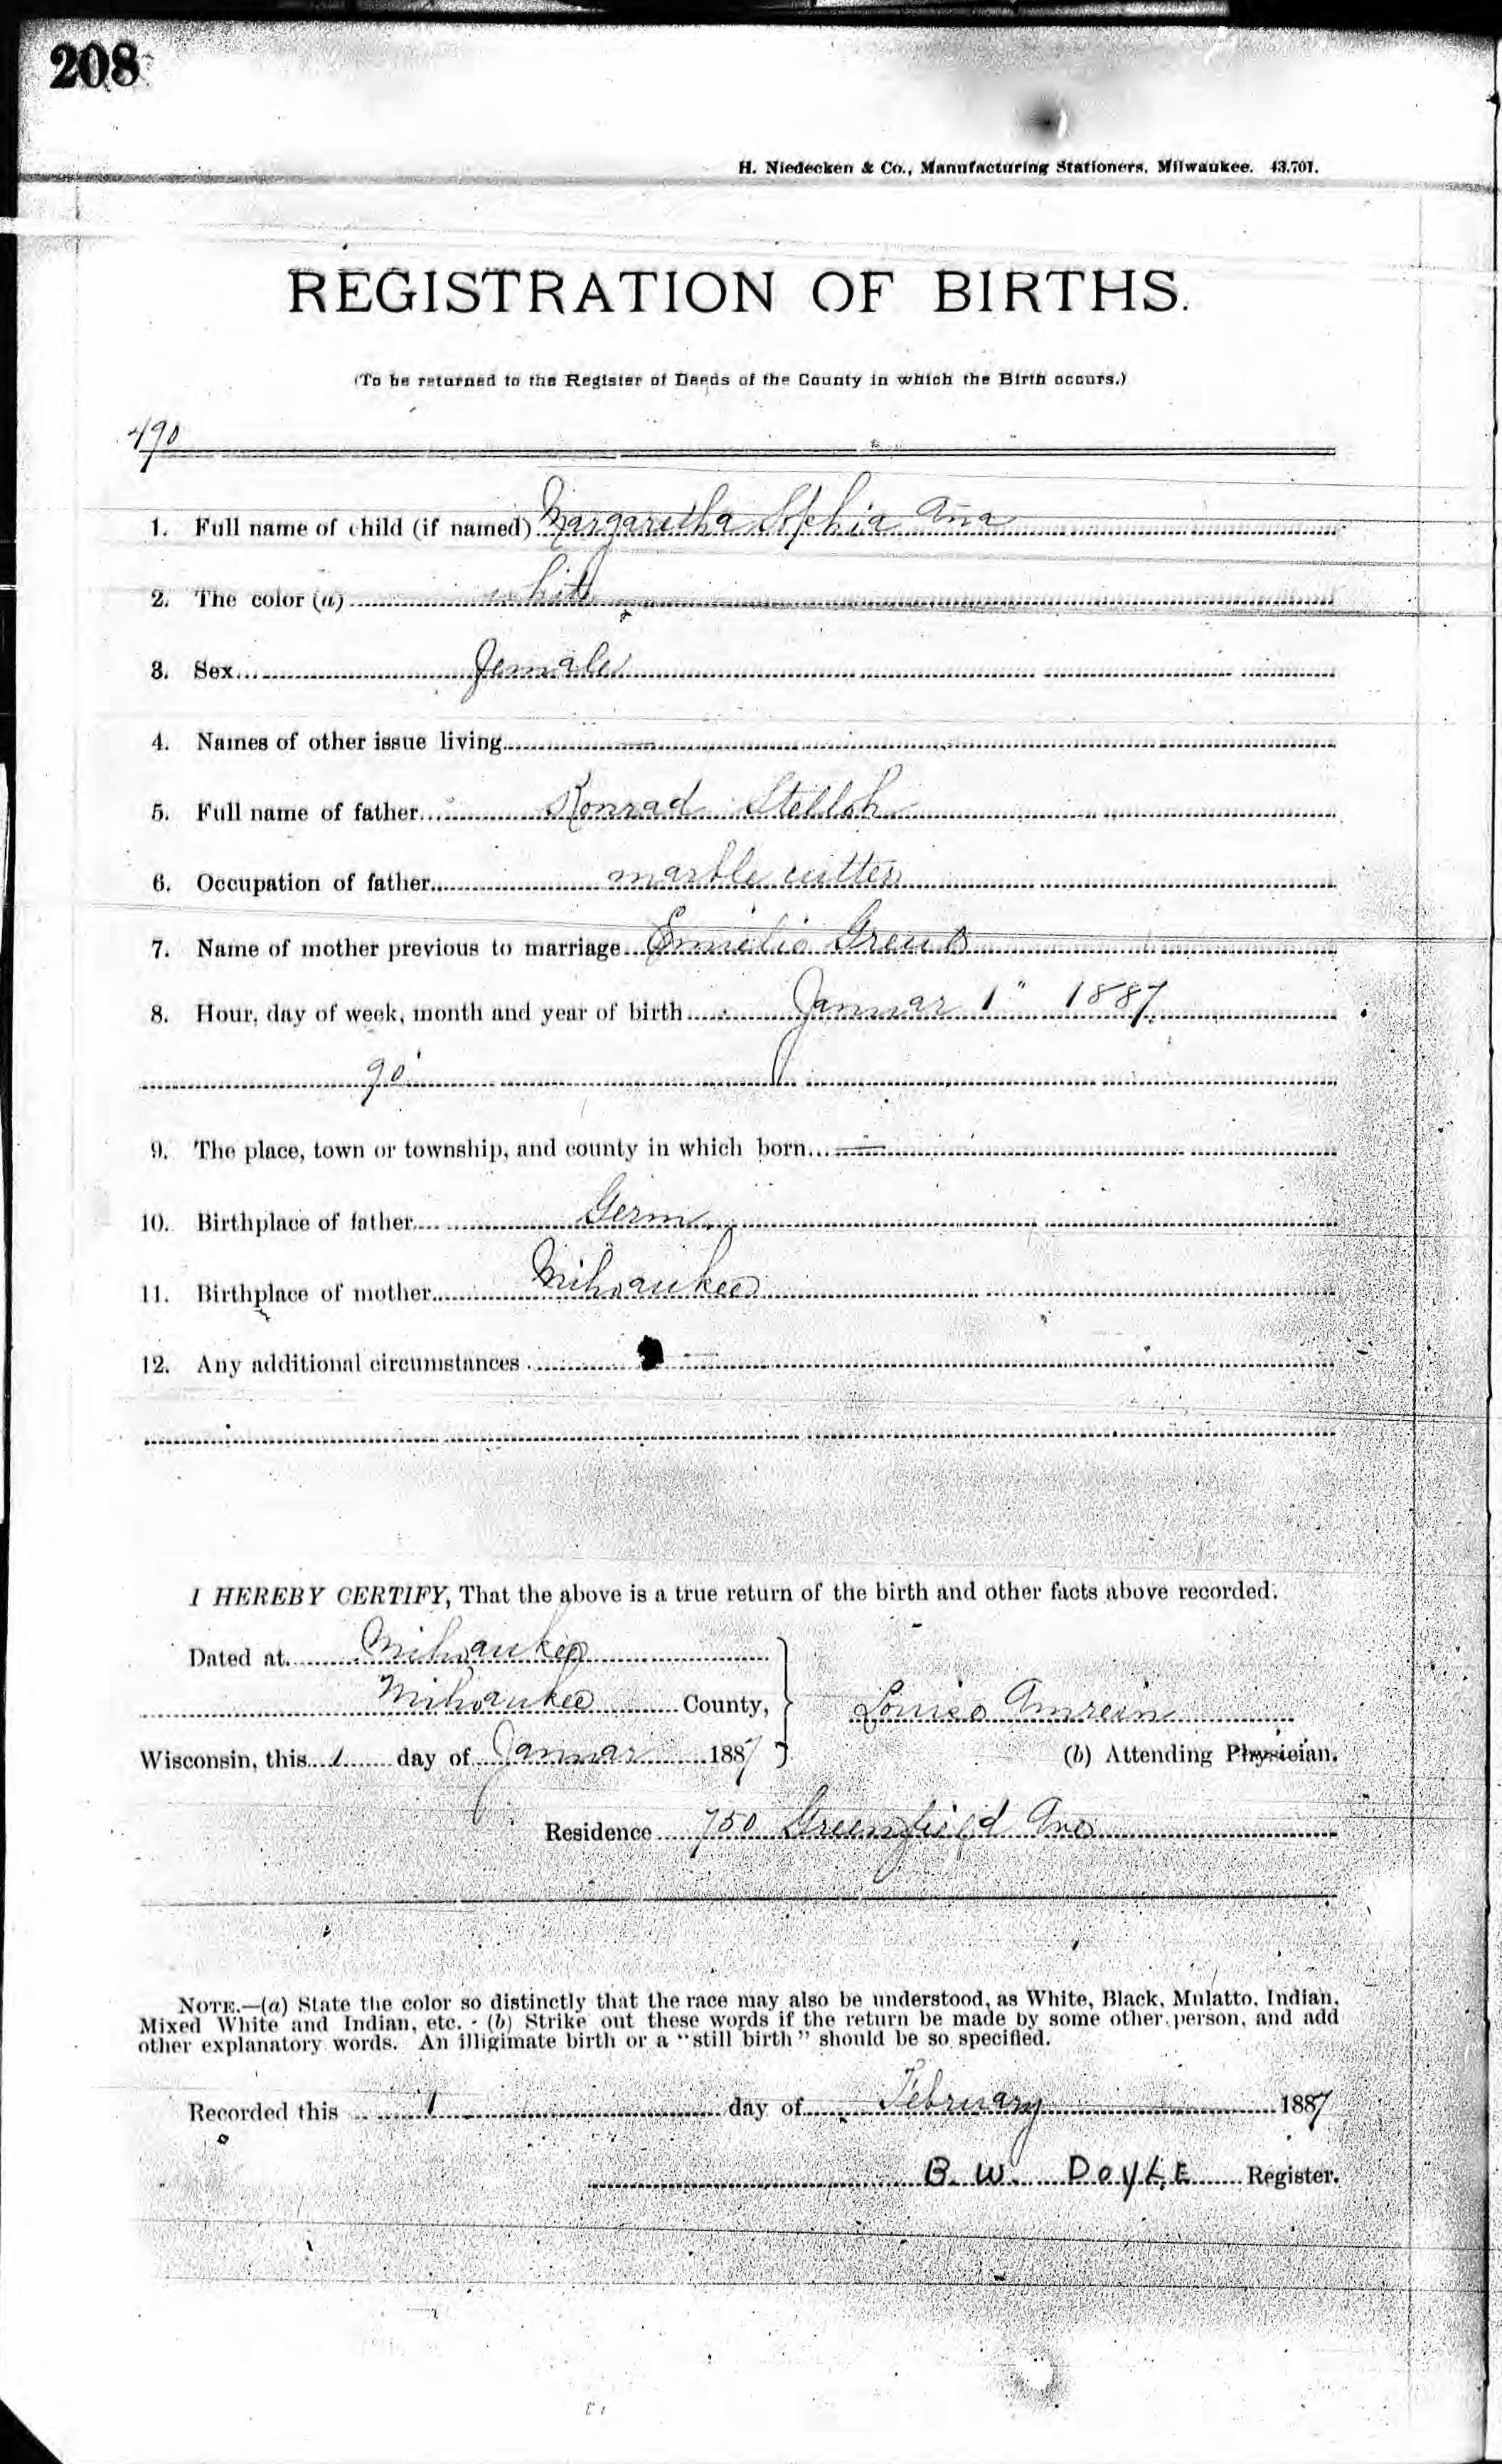 208
H. Niedecken & Co., Manufacturing Stationers, Milwaukee. 43,701.
REGISTRATION OF BIRTHS.
(To be returned to the Register of Deeds of the County in which the Birth occurs.)
490
1. Full name of child (if named) Margaretha Sophia Ana
2. The color (a) white
3. Sex Female
4. Names of other issue living —
5. Full name of father Konrad Stelloh
6. Occupation of father marble cutter
7. Name of mother previous to marriage Emelie
8. Hour, day of week, month and year of birth Januar 1" 1887
9. The place, town or township, and county in which born —
10. Birthplace of father Germ
11. Birthplace of mother Milwaukee
12. Any additional circumstances —
I HEREBY CERTIFY, That the above is a true return of the birth and other facts above recorded.
Dated at Milwaukee
Milwaukee County,
Louise Amrein
Wisconsin, this 1 day of Januar 1887
(b) Attending Physician.
Residence 750 Greenfield Ave
NOTE.—(a) State the color so distinctly that the race may also be understood, as White, Black, Mulatto, Indian,
Mixed White and Indian, etc. - (b) Strike out these words if the return be made by some other person, and add
other explanatory words. An illigimate birth or a "still birth" should be so specified.
Recorded this 1 day of February 1887
B. W. DOYLE Register.